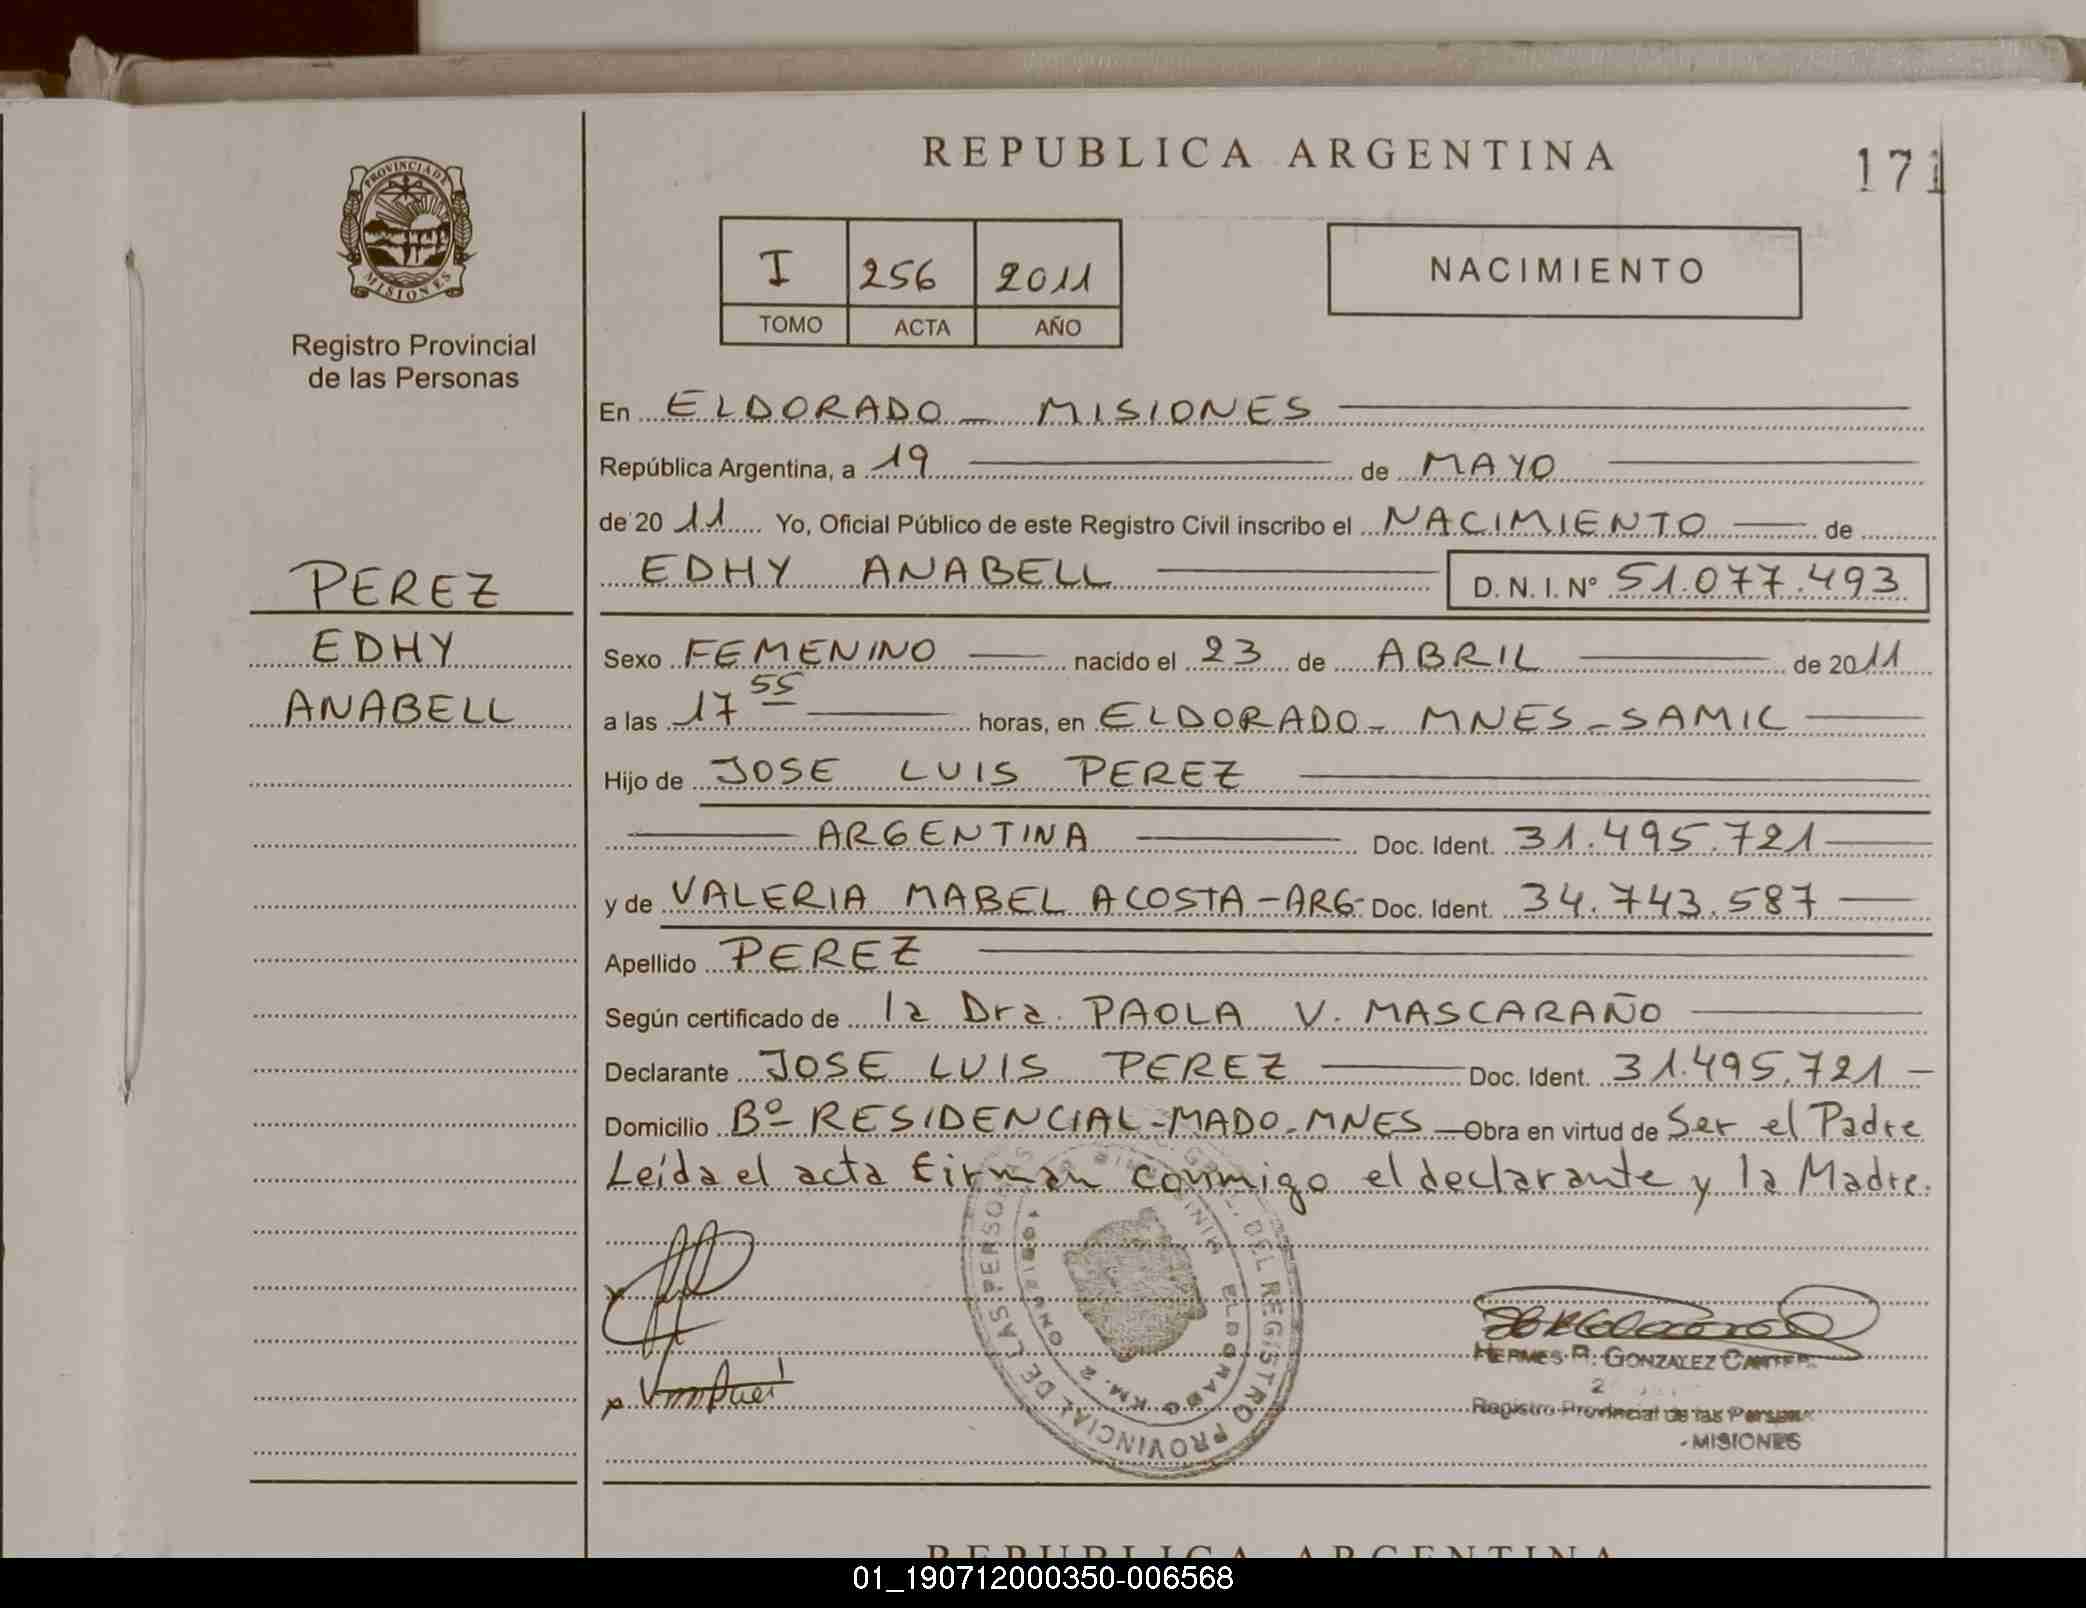 REPUBLICA ARGENTINA
171
PROVINCIA DE
MISIONES
Registro Provincial
de las Personas
I 256 2011
TOMO ACTA AÑO
NACIMIENTO
En ELDORADO - MISIONES
República Argentina, a 19 de MAYO
de 20 11 Yo, Oficial Público de este Registro Civil inscribo el NACIMIENTO de
EDHY ANABELL D. N. I. Nº 51.077.493
PEREZ
EDHY
ANABELL
Sexo FEMENINO nacido el 23 de ABRIL de 2011
a las 17 55 horas, en ELDORADO - MNES - SAMIC
Hijo de JOSE LUIS PEREZ
ARGENTINA Doc. Ident. 31.495.721
y de VALERIA MABEL ACOSTA - ARG - Doc. Ident. 34.743.587
Apellido PEREZ
Según certificado de la Dra. PAOLA V. MASCARAÑO
Declarante JOSE LUIS PEREZ Doc. Ident. 31.495.721 -
Domicilio Bº RESIDENCIAL - MADO - MNES - Obra en virtud de Ser el Padre
Leída el acta firman conmigo el declarante y la Madre.
DEL REGISTRO PROVINCIAL DE LAS PERSONAS
ELDORADO KM. 2
HERMES R. GONZALEZ
Registro Provincial de las Personas
- MISIONES
REPUBLICA ARGENTINA
01_190712000350-006568